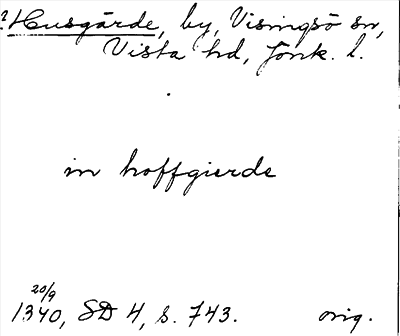 ? Husgärde, by, Visingsö sn,
Vista hd, Jönk. l.
in hoffgierde
20/9
1340, SD 4, s. 743. orig.